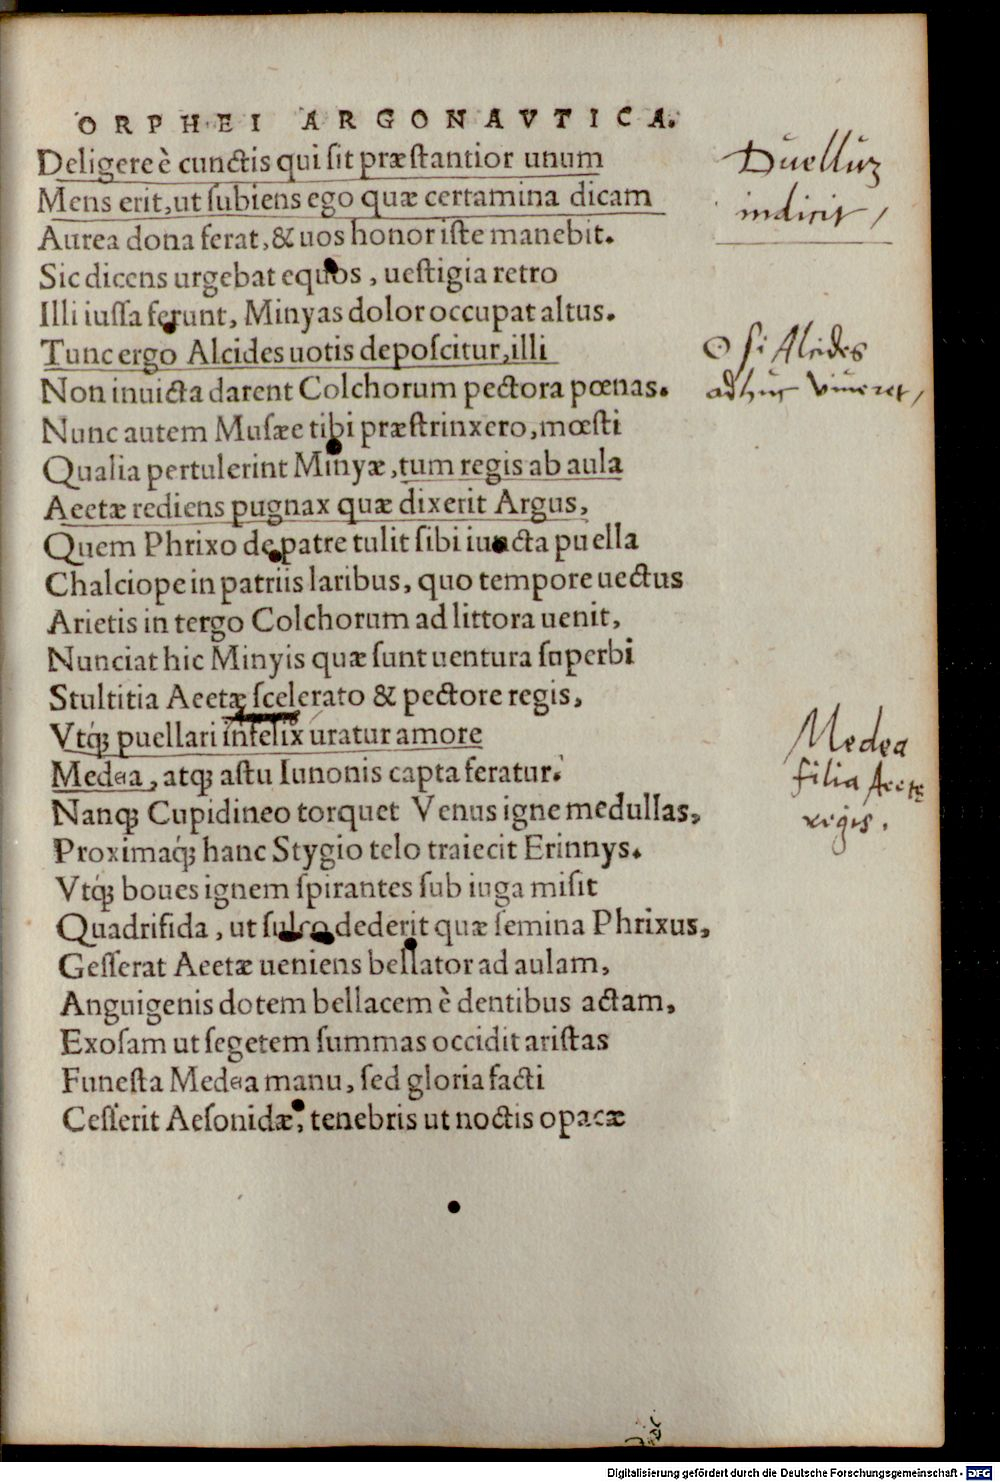 ORPHEI ARGONAVTICA.
Deligere è cunctis qui sit præstantior unum
Mens erit, ut subiens ego quæ certamina dicam
Aurea dona ferat, & uos honor iste manebit.
Sic dicens urgebat equos, uestigia retro
Illi iussa ferunt, Minyas dolor occupat altus.
Tunc ergo Alcides uotis deposcitur, illi
Non inuicta darent Colchorum pectora pœnas.
Nunc autem Musæe tibi præstrinxero, mœsti
Qualia pertulerint Minyæ, tum regis ab aula
Aeetæ rediens pugnax quæ dixerit Argus,
Quem Phrixo de patre tulit sibi iuncta puella
Chalciope in patriis laribus, quo tempore uectus
Arietis in tergo Colchorum ad littora uenit,
Nunciat hic Minyis quæ sunt uentura superbi
Stultitia Aeetæ scelerato & pectore regis,
Vtq́; puellari infelix uratur amore
Medea, atq; astu Iunonis capta feratur.
Nanq; Cupidineo torquet Venus igne medullas,
Proximaq́; hanc Stygio telo traiecit Erinnys.
Vtq́; boues ignem spirantes sub iuga misit
Quadrifida, ut sulco dederit quæ semina Phrixus,
Gesserat Aeetæ ueniens bellator ad aulam,
Anguigenis dotem bellacem è dentibus actam,
Exosam ut segetem summas occidit aristas
Funesta Medea manu, sed gloria facti
Cesserit Aesonidæ, tenebris ut noctis opacæ
Duellũ
indicit,
O si Alcides
adhuc viueret,
Medea
filia Aeetę
regis.
Digitalisierung gefördert durch die Deutsche Forschungsgemeinschaft - DFG